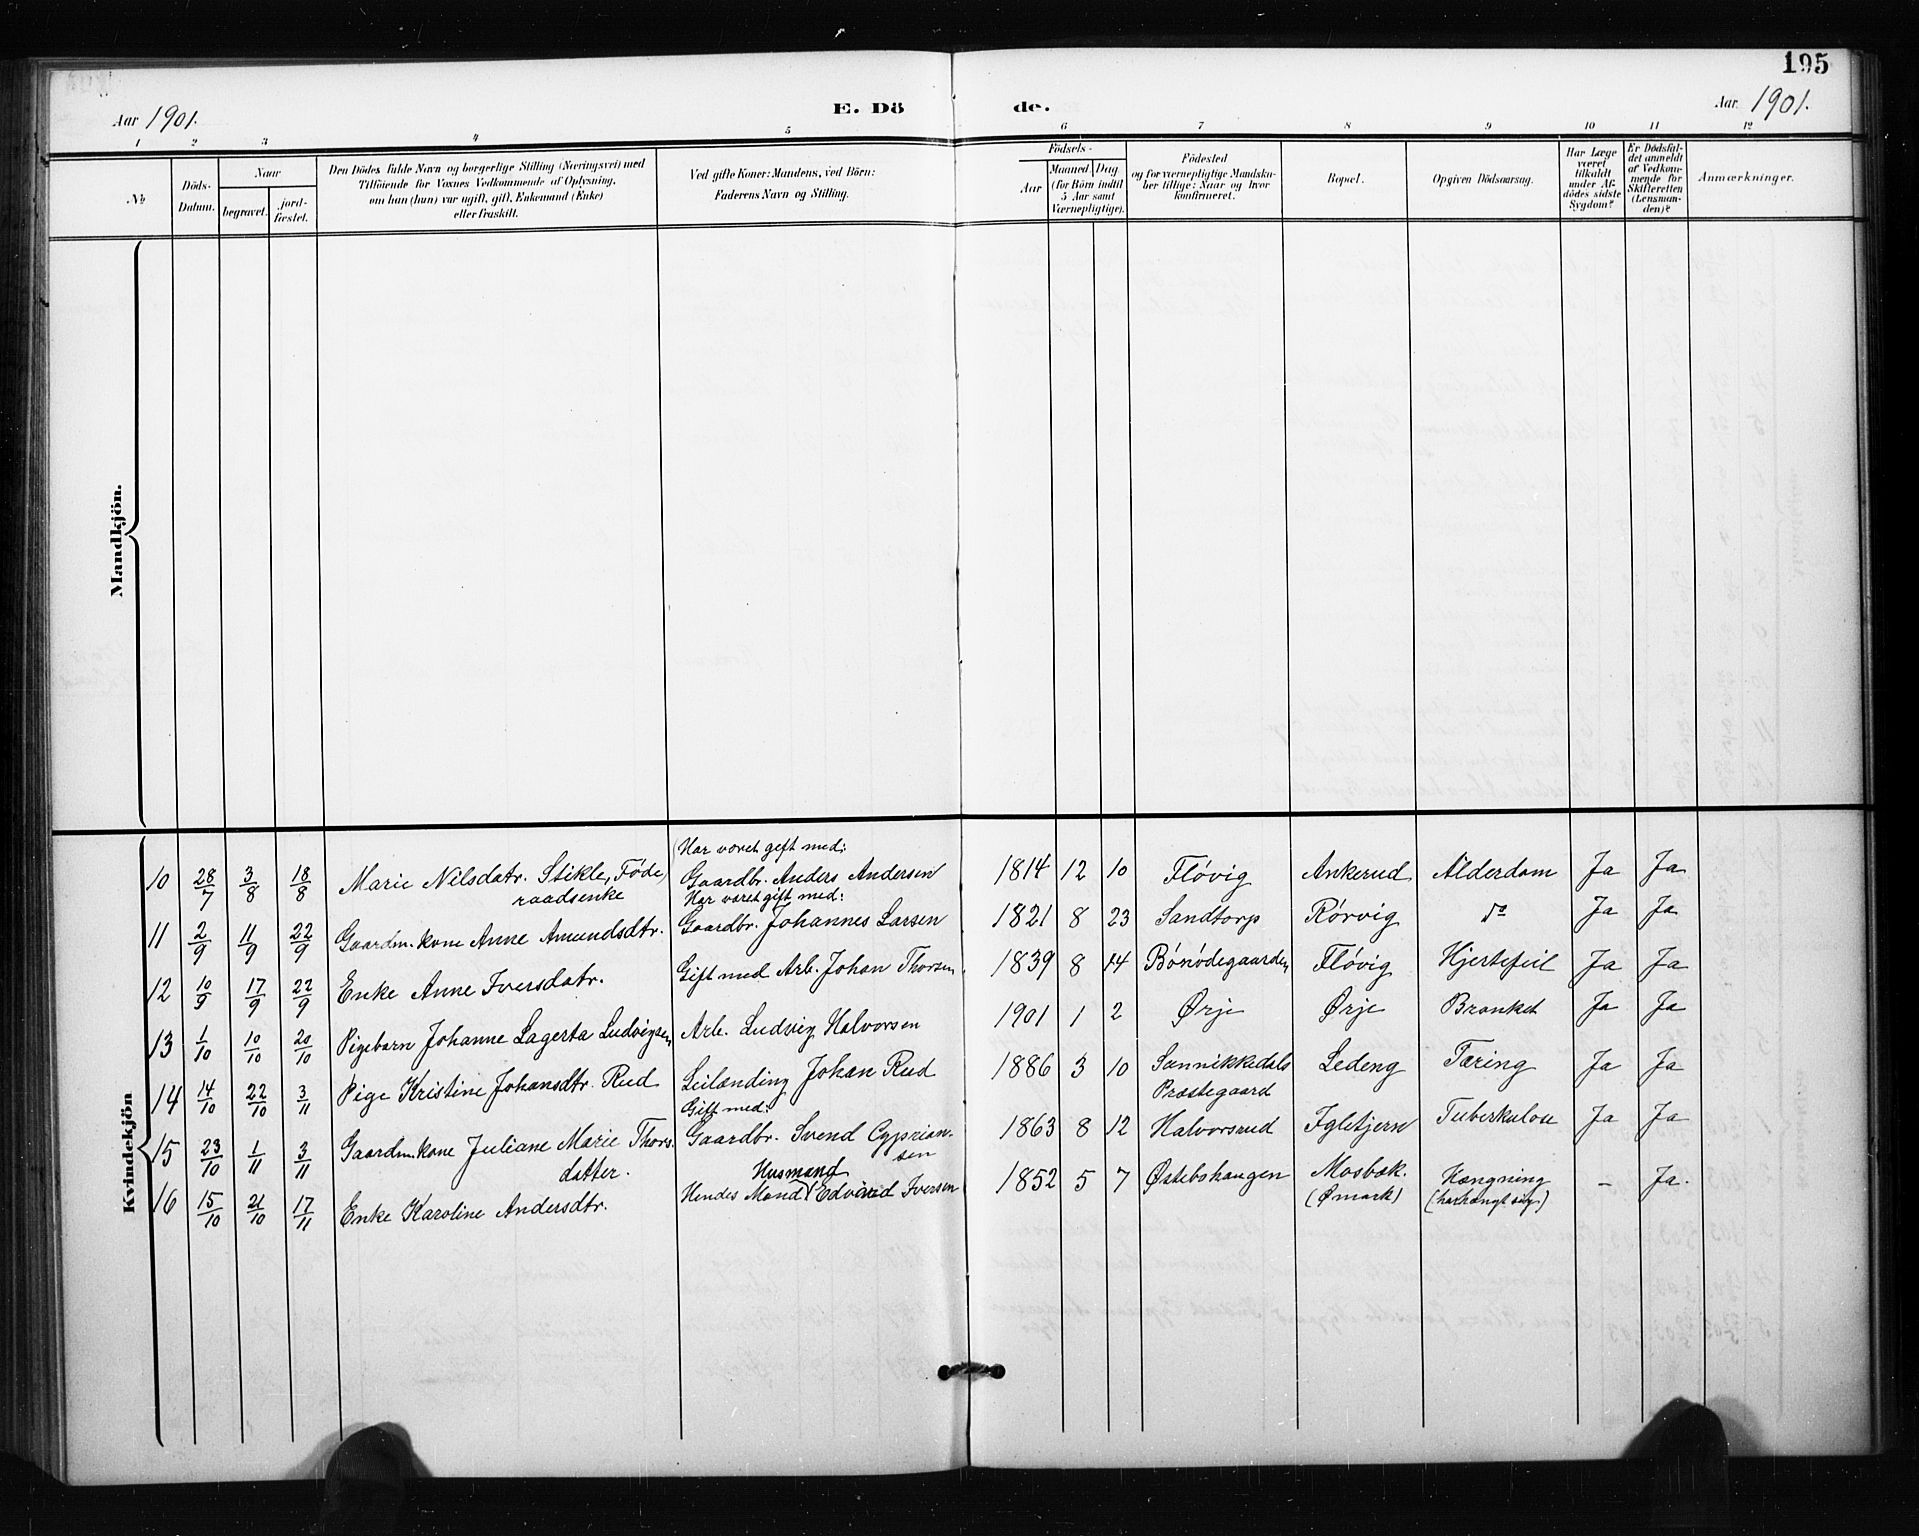 195
Aar 1901. E. Dö de. Aar 1901.
1 2 3 4 5 6 7 8 9 10 11 12
No.
Döds-
Datum.
Naar
begravet. jord-
fæstet.
Den Dödes fulde Navn og borgerlige Stilling (Næringsvei) med
Tilföiende for Voxnes Vedkommende af Oplysning,
om han (hun) var ugift, gift, Enkemand (Enke)
eller fraskilt.
Ved gifte Koner: Mandens, ved Börn:
Faderens Navn og Stilling.
Födsels-
Aar Maaned. Dag
(for Börn indtil
5 Aar samt
Værnepligtige).
Födested
og for værnepligtige Mandska-
ber tillige: Naar og hvor
konfirmeret.
Bopæl.
Opgiven Dödsaarsag.
Har Læge
været
tilkaldt
under Af-
dödes sidste
Sygdom?
Er Dödsfal-
det anmeldt
af Vedkom-
mende for
Skifteretten
(Lensman-
den)?
Anmærkninger.
Mandkjön.
Kvindekjön
Har været gift med:
10 28/7 3/8 18/8 Marie Nilsdatr. Stikle, Føde Gaardbr. Anders Andersen 1814 12 10 Fløvig Ankerud Alderdom Ja Ja
raadsenke Har været gift med:
11 2/9 11/9 22/9 Gaardm.kone Anne Amundsdtr. Gaardbr. Johannes Larsen 1821 8 23 Sandtorp Rørvig do Ja Ja
12 10/9 17/9 22/9 Enke Anne Iversdatr. Gift med Arb. Johan Thorsen 1839 8 14 Fløvig Hjertefeil Ja Ja
13 1/10 10/10 20/10 Pigebarn Johanne Lagerta Ludvigsen Arb. Ludvig Halvorsen 1901 1 2 Ørje Ørje Bronkit Ja Ja
14 14/10 22/10 3/11 Pige Kristine Johansdtr. Rud Leilænding Johan Rud 1886 3 10 Sannikkedals Ledeng Tæring Ja Ja
Præstegaard
Gift med:
15 23/10 1/11 3/11 Gaardm.kone Juliane Marie Thors Gaardbr. Svend Cyprian- 1863 8 12 Halvorsrud Igletjern Tuberkulose Ja Ja
datter. sen
Husmand
16 15/10 21/10 17/11 Enke Karoline Andersdtr. Hendes Mand Edvard Iversen 1852 5 7 Østebshaugen Mosbæk. Hængning – Ja.
(Ømark) (har hængt sig)